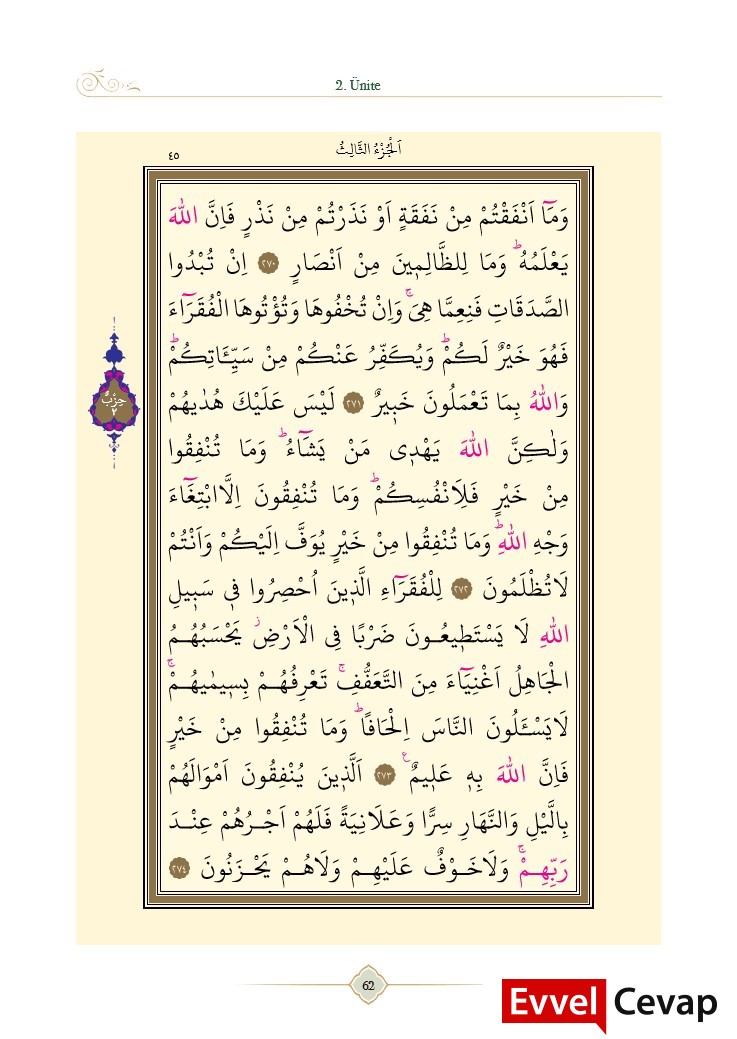 2. Ünite
اَلْجُزْءُ الثَّالِثُ
٤٥
وَمَٓا اَنْفَقْتُمْ مِنْ نَفَقَةٍ اَوْ نَذَرْتُمْ مِنْ نَذْرٍ فَاِنَّ اللّٰهَ
يَعْلَمُهُۜ وَمَا لِلظَّالِم۪ينَ مِنْ اَنْصَارٍ ﴿٢٧٠﴾ اِنْ تُبْدُوا
الصَّدَقَاتِ فَنِعِمَّا هِيَۚ وَاِنْ تُخْفُوهَا وَتُؤْتُوهَا الْفُقَرَٓاءَ
فَهُوَ خَيْرٌ لَكُمْۜ وَيُكَفِّرُ عَنْكُمْ مِنْ سَيِّـَٔاتِكُمْۜ
وَاللّٰهُ بِمَا تَعْمَلُونَ خَب۪يرٌ ﴿٢٧١﴾ لَيْسَ عَلَيْكَ هُدٰيهُمْ
وَلٰكِنَّ اللّٰهَ يَهْد۪ي مَنْ يَشَٓاءُۜ وَمَا تُنْفِقُوا
مِنْ خَيْرٍ فَلِاَنْفُسِكُمْۜ وَمَا تُنْفِقُونَ اِلَّا ابْتِغَٓاءَ
وَجْهِ اللّٰهِۜ وَمَا تُنْفِقُوا مِنْ خَيْرٍ يُوَفَّ اِلَيْكُمْ وَاَنْتُمْ
لَا تُظْلَمُونَ ﴿٢٧٢﴾ لِلْفُقَرَٓاءِ الَّذ۪ينَ اُحْصِرُوا ف۪ي سَب۪يلِ
اللّٰهِ لَا يَسْتَط۪يعُونَ ضَرْبًا فِي الْاَرْضِۘ يَحْسَبُهُمُ
الْجَاهِلُ اَغْنِيَٓاءَ مِنَ التَّعَفُّفِۚ تَعْرِفُهُمْ بِس۪يمٰيهُمْۚ
لَا يَسْـَٔلُونَ النَّاسَ اِلْحَافًاۜ وَمَا تُنْفِقُوا مِنْ خَيْرٍ
فَاِنَّ اللّٰهَ بِه۪ عَل۪يمٌ ﴿٢٧٣﴾ اَلَّذ۪ينَ يُنْفِقُونَ اَمْوَالَهُمْ
بِالَّيْلِ وَالنَّهَارِ سِرًّا وَعَلَانِيَةً فَلَهُمْ اَجْرُهُمْ عِنْدَ
رَبِّهِمْۚ وَلَا خَوْفٌ عَلَيْهِمْ وَلَا هُمْ يَحْزَنُونَ ﴿٢٧٤﴾
حِزْبٌ
٢
62
Evvel Cevap